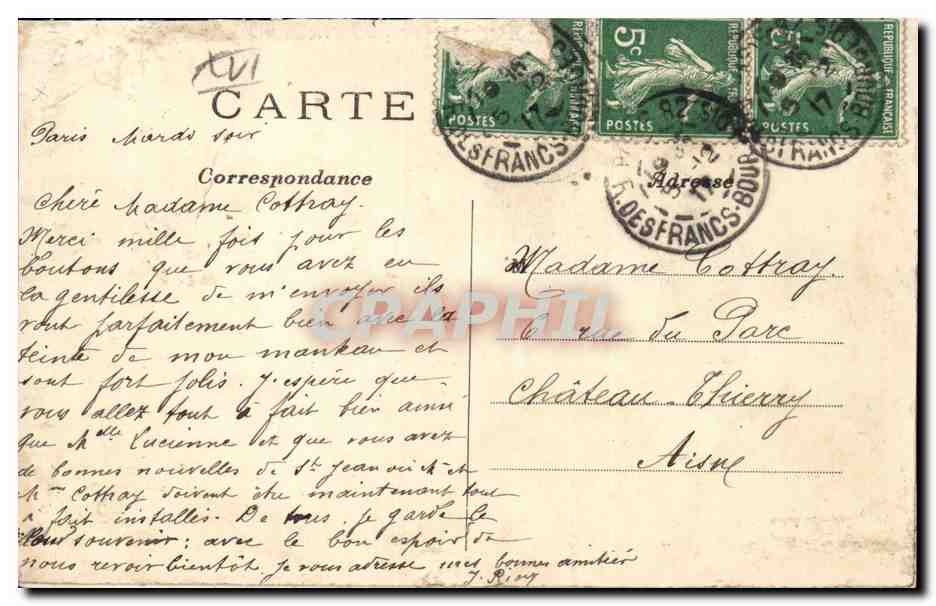 XVI
CARTE
5c
REPUBLIQUE FRANÇAISE
POSTES
POSTES
POSTES
R. DES FRANCS-BOURGEOIS
Paris Mardi soir
Correspondance
Adresse
Chère Madame Cottray.
Merci mille fois pour les
boutons que vous avez eu
la gentilesse de m'envoyer ils
vont parfaitement bien avec la
teinte de mon manteau et
sont fort jolis. J'espère que
vous allez tout à fait bien ainsi
que Melle Lucienne et que vous avez
de bonnes nouvelles de St Jean où M. et
Mme Cottray doivent être maintenant tout
à fait installés. De tous, je garde le
souvenir : avec le bon espoir de
nous revoir bientôt, je vous adresse mes bonnes amitiés
Madame Cottray.
6 rue du Parc
Château-Thierry
Aisne
CPAPHIL